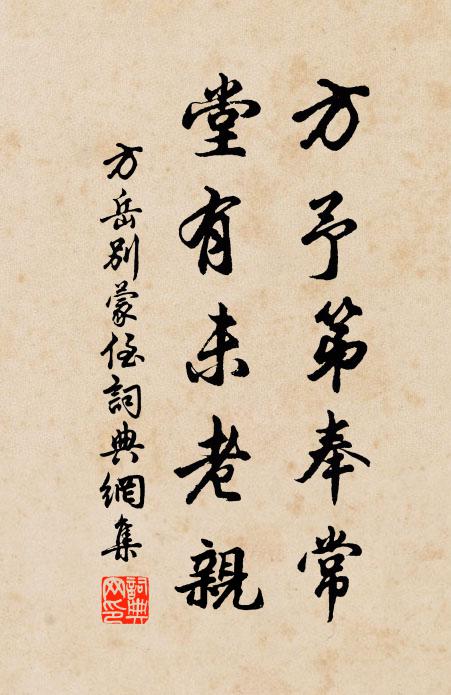 方予第奉常
堂有未老親
方岳別蒙侄詞典網集
詞典網印